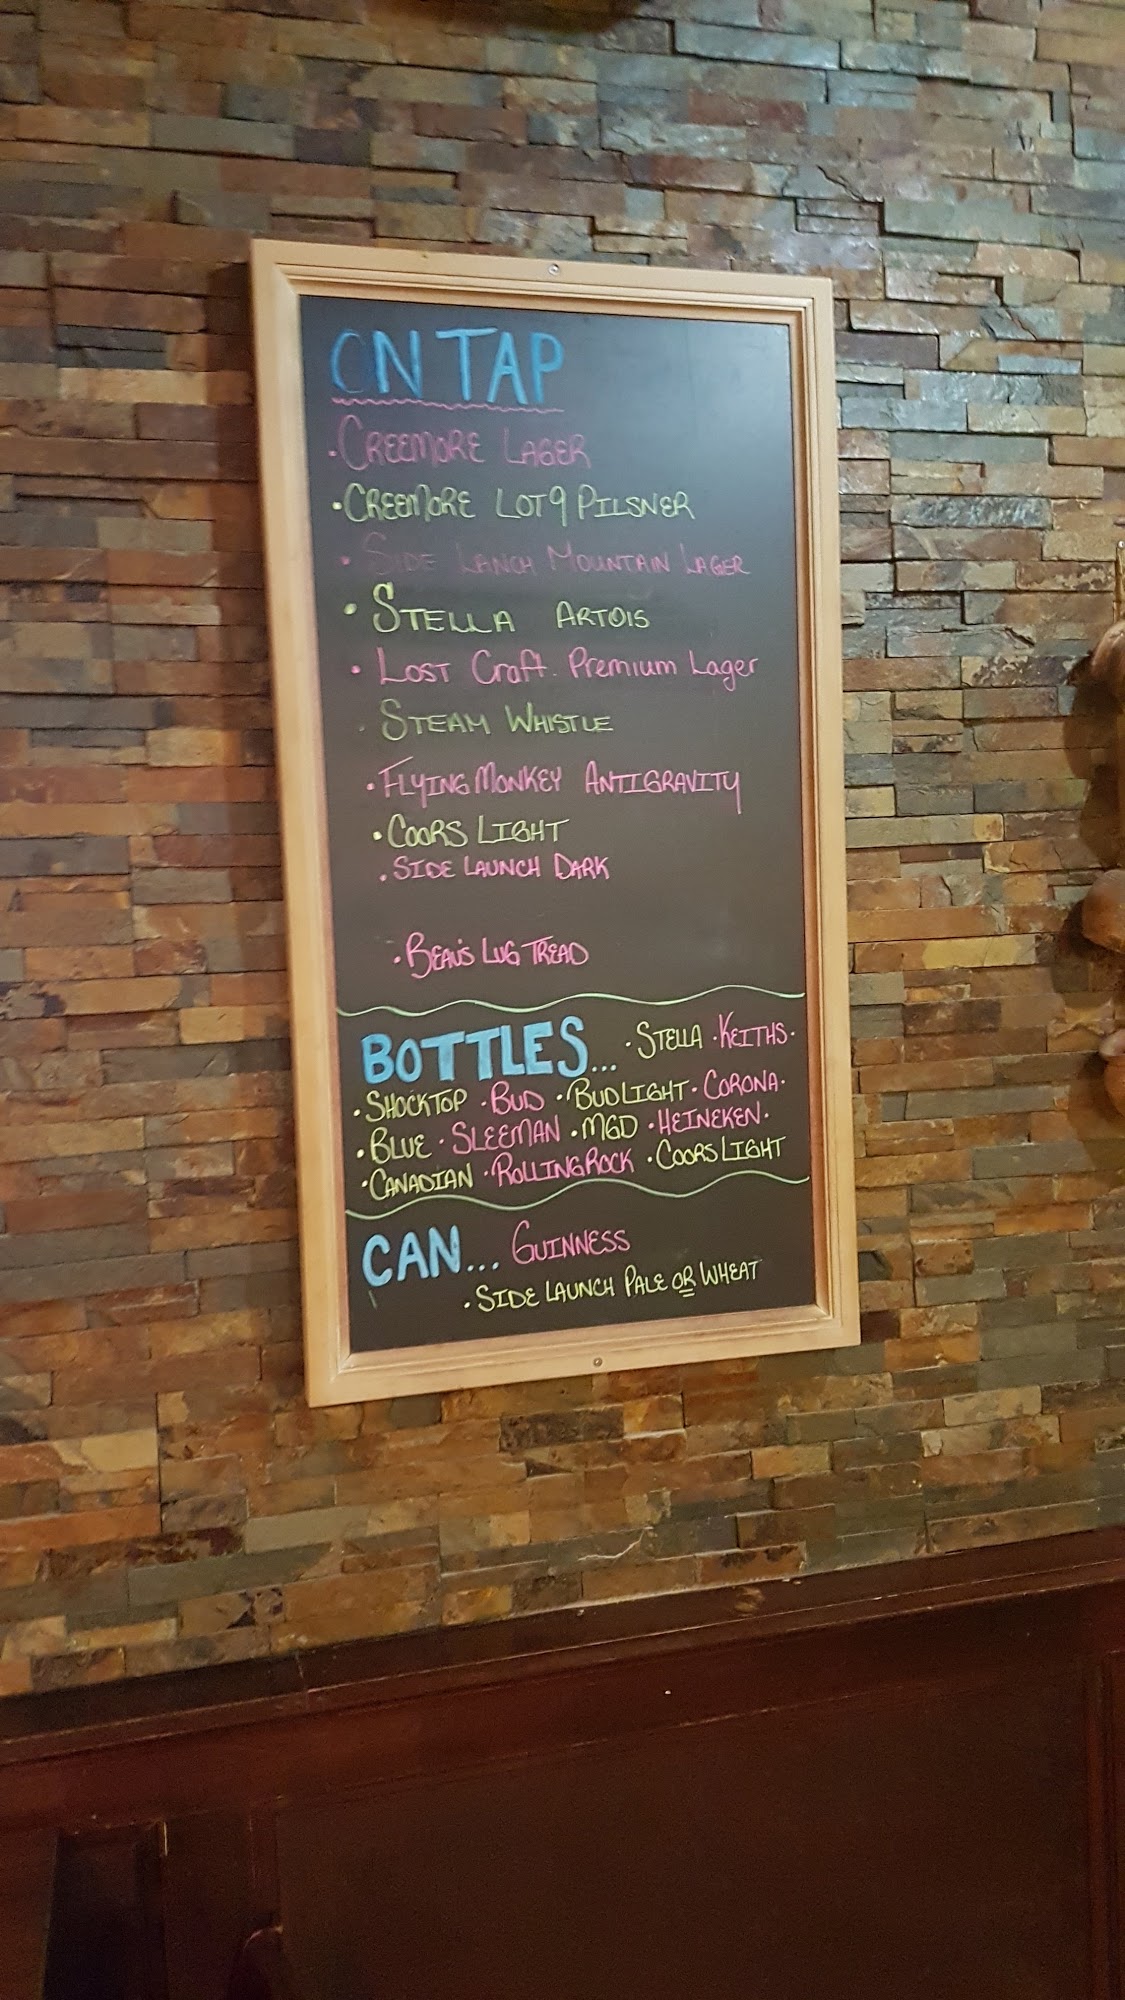 ON TAP
• CREEMORE LAGER
• CREEMORE LOT 9 PILSNER
• SIDE LANCH MOUNTAIN LAGER
• STELLA ARTOIS
• LOST Craft. Premium Lager
• STEAM WHISTLE
• FLYING MONKEY ANTIGRAVITY
• COORS LIGHT
• SIDE LAUNCH DARK
• BEAU'S LUG TREAD
BOTTLES... • STELLA • KEITHS •
• SHOCKTOP • BUD • BUD LIGHT • CORONA •
• BLUE • SLEEMAN • MGD • HEINEKEN •
• CANADIAN • ROLLING ROCK • COORS LIGHT
CAN... GUINNESS
• SIDE LAUNCH PALE OR WHEAT